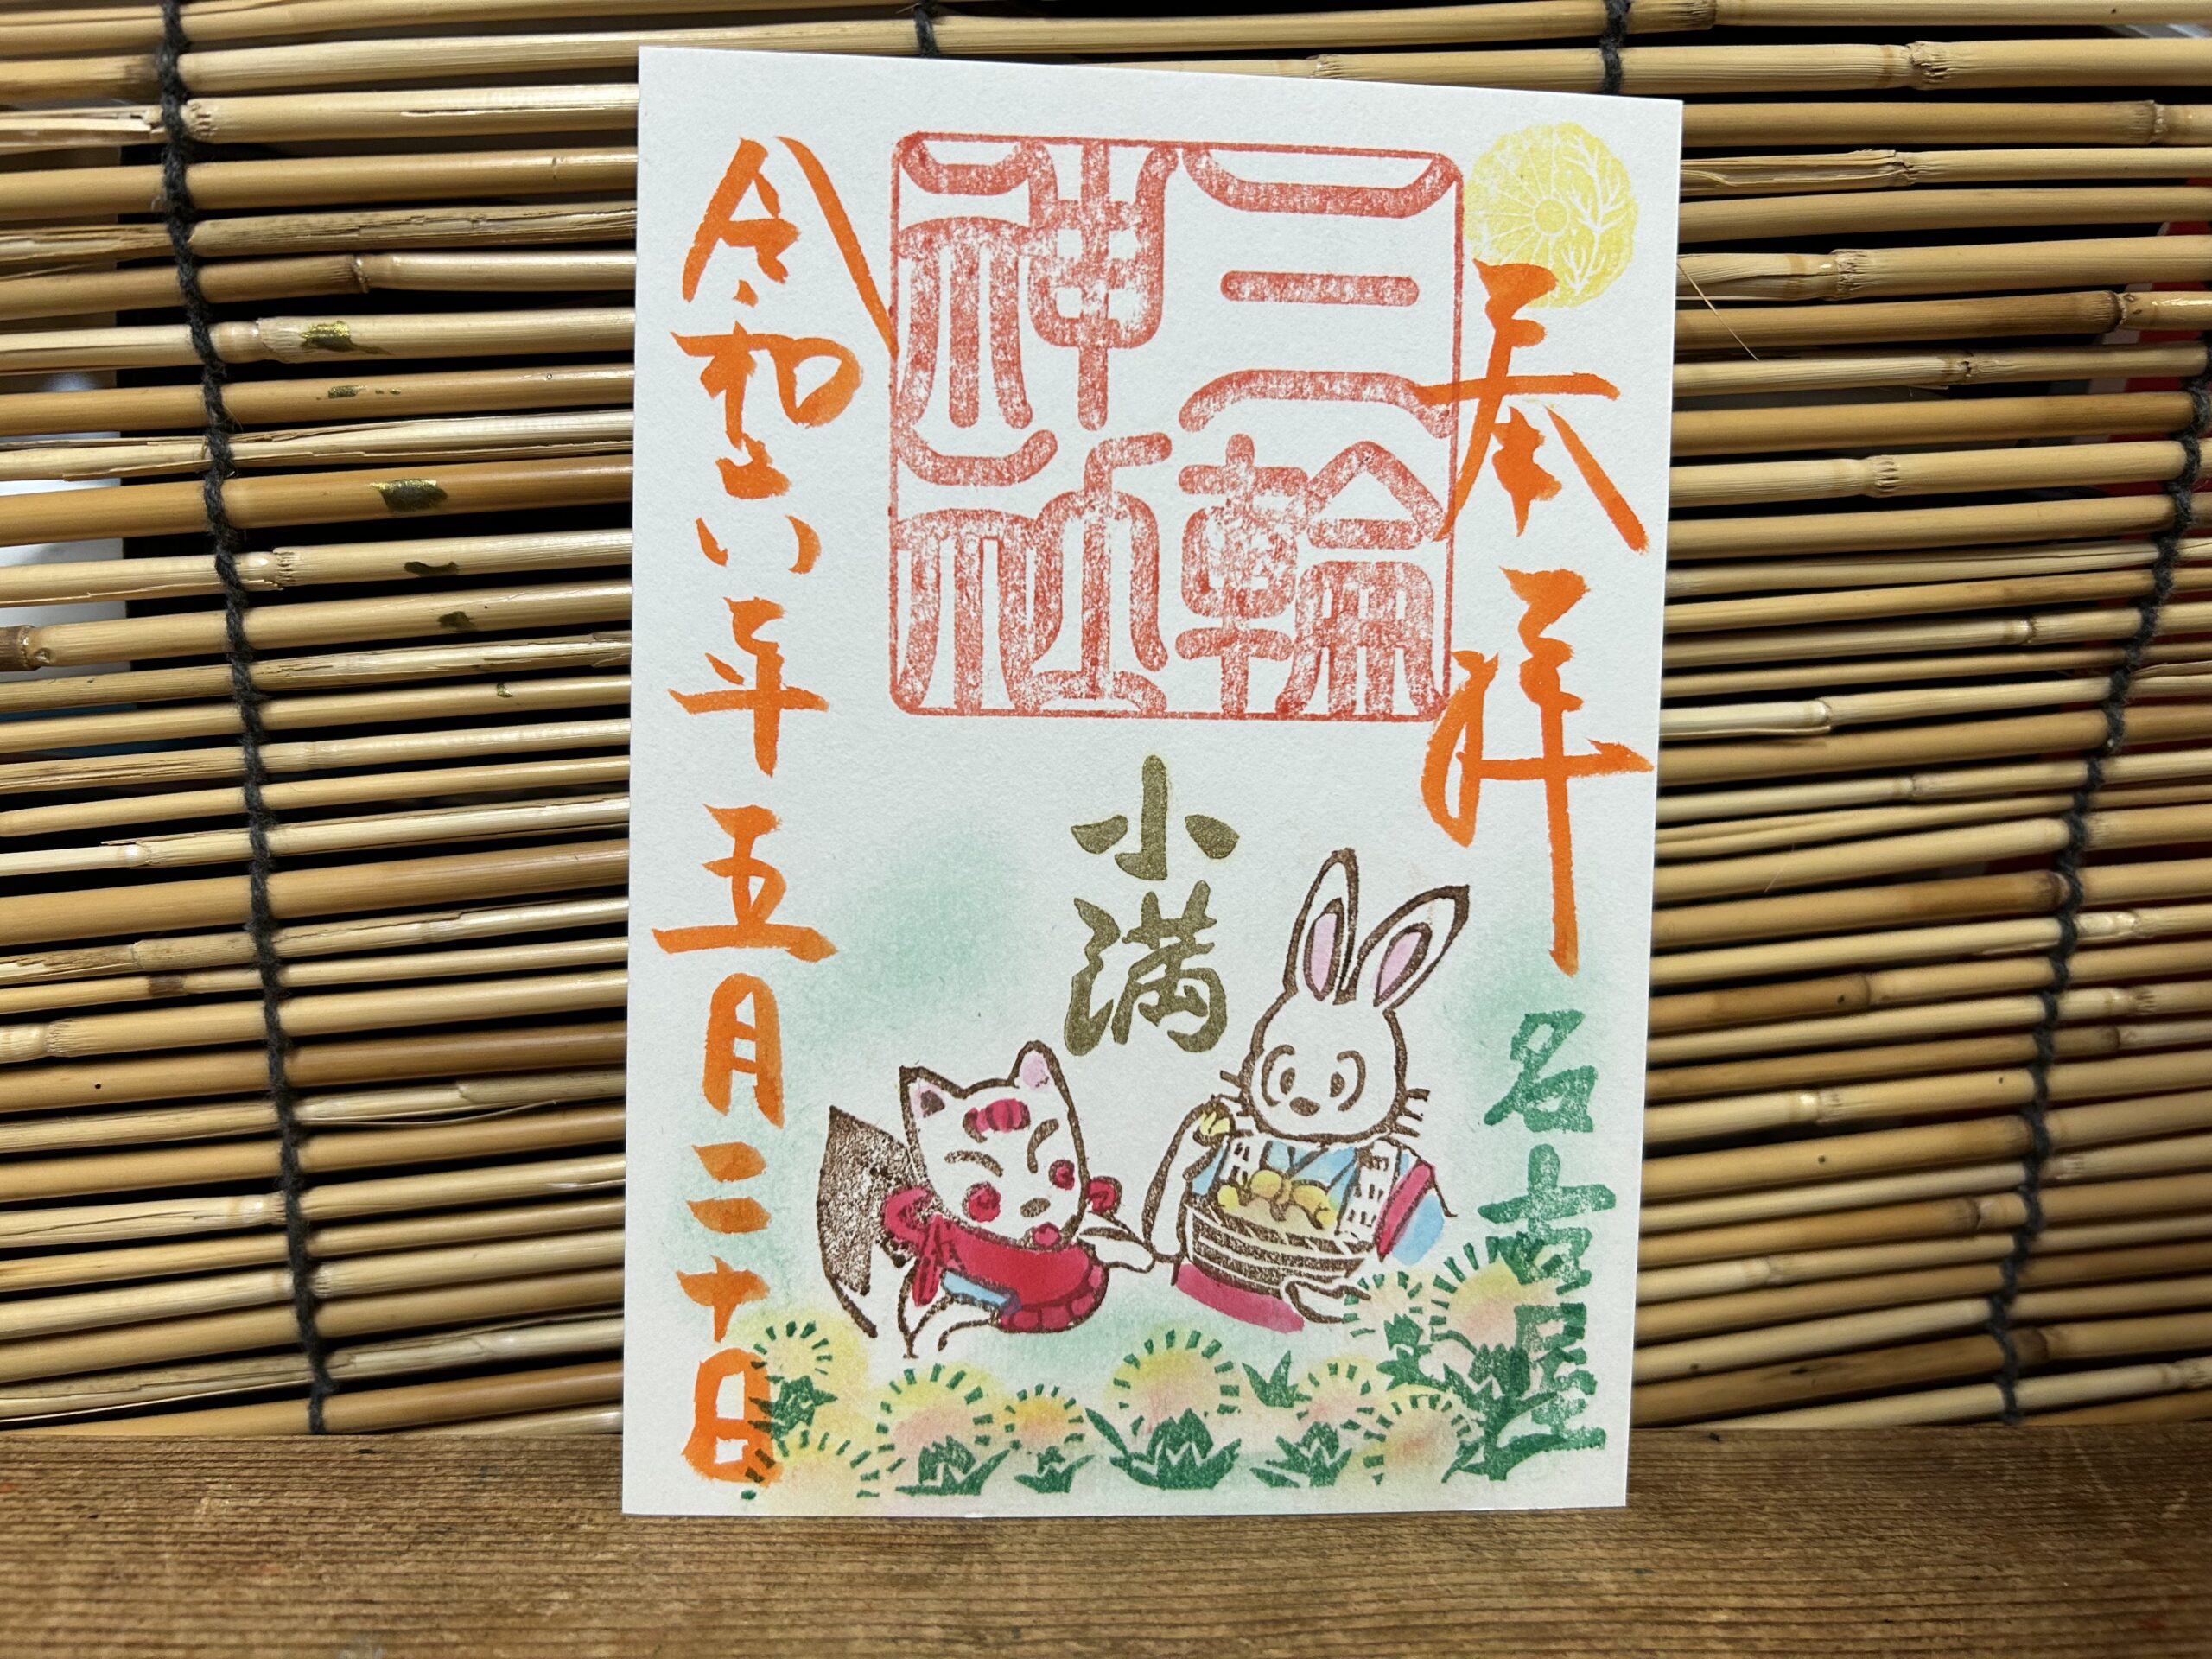 奉拝
名古屋
三輪
神社
小満
令和六年五月二十日